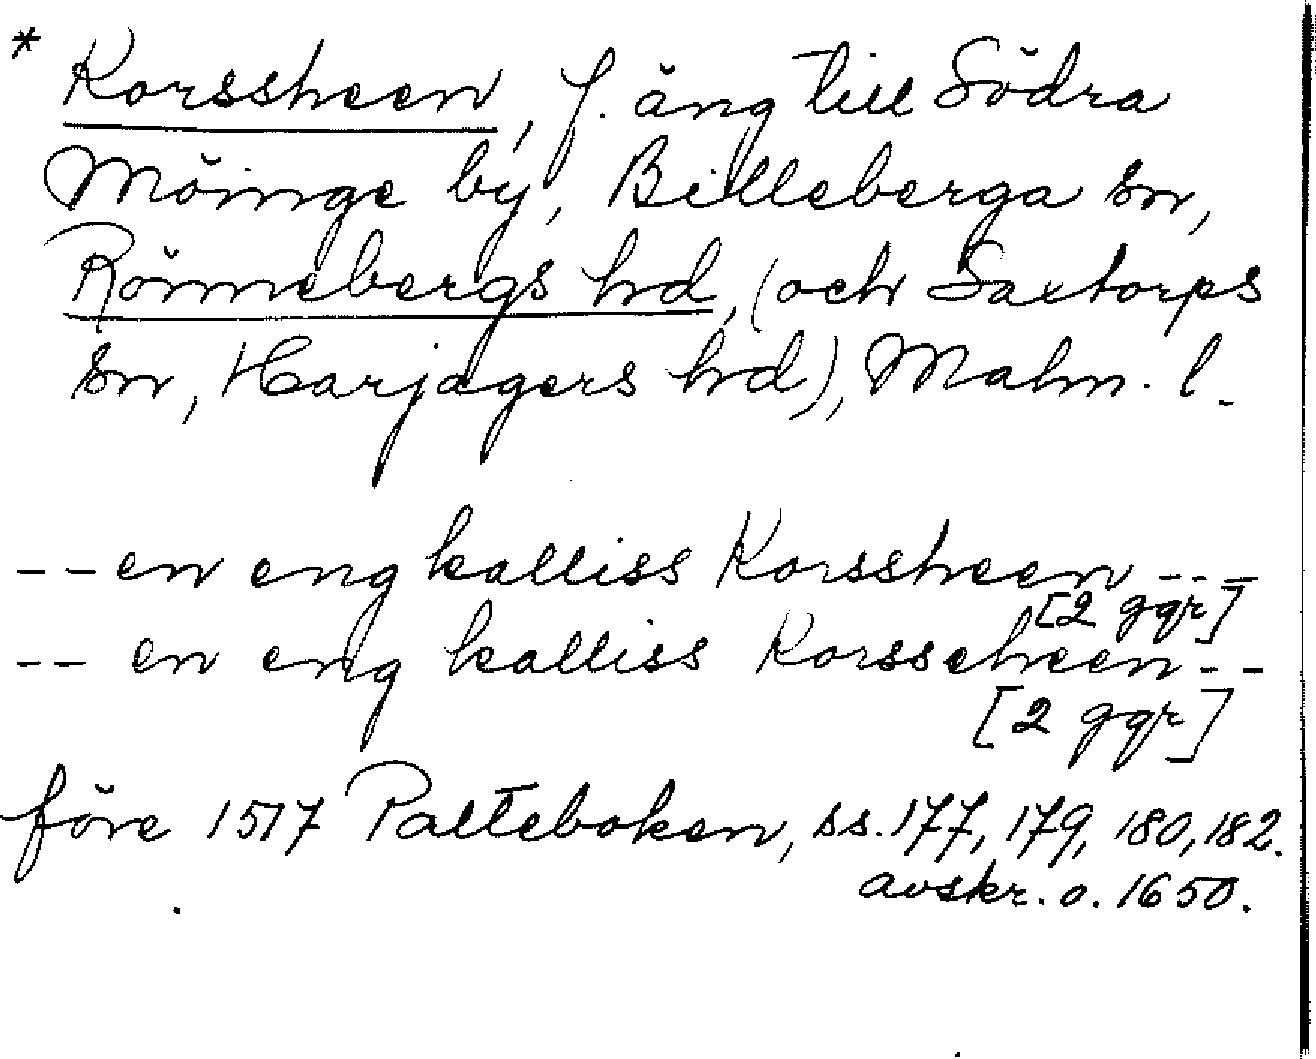 * Korssheen, f. äng till Södra
Möinge by, Billeberga sn,
Rönnebergs hd, (och Saxtorps
sn, Harjagers hd), Malm. l.
-- en eng kalliss Korssheen ---
[2 ggr]
-- en eng kalliss Korsscheen --
[2 ggr]
före 1517 Palteboken, ss. 177, 179, 180, 182.
avskr. o. 1650.